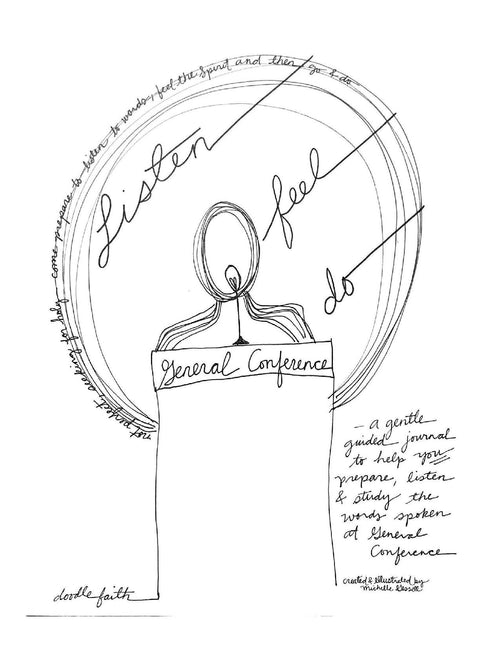 not perfect, seeking for holy - come prepare to listen to words, feel the Spirit and then go & do
Listen
feel
do
General Conference
- a gentle
guided journal
to help you
prepare, listen
& study the
words spoken
at General
Conference
created & illustrated by
Michelle
doodle faith